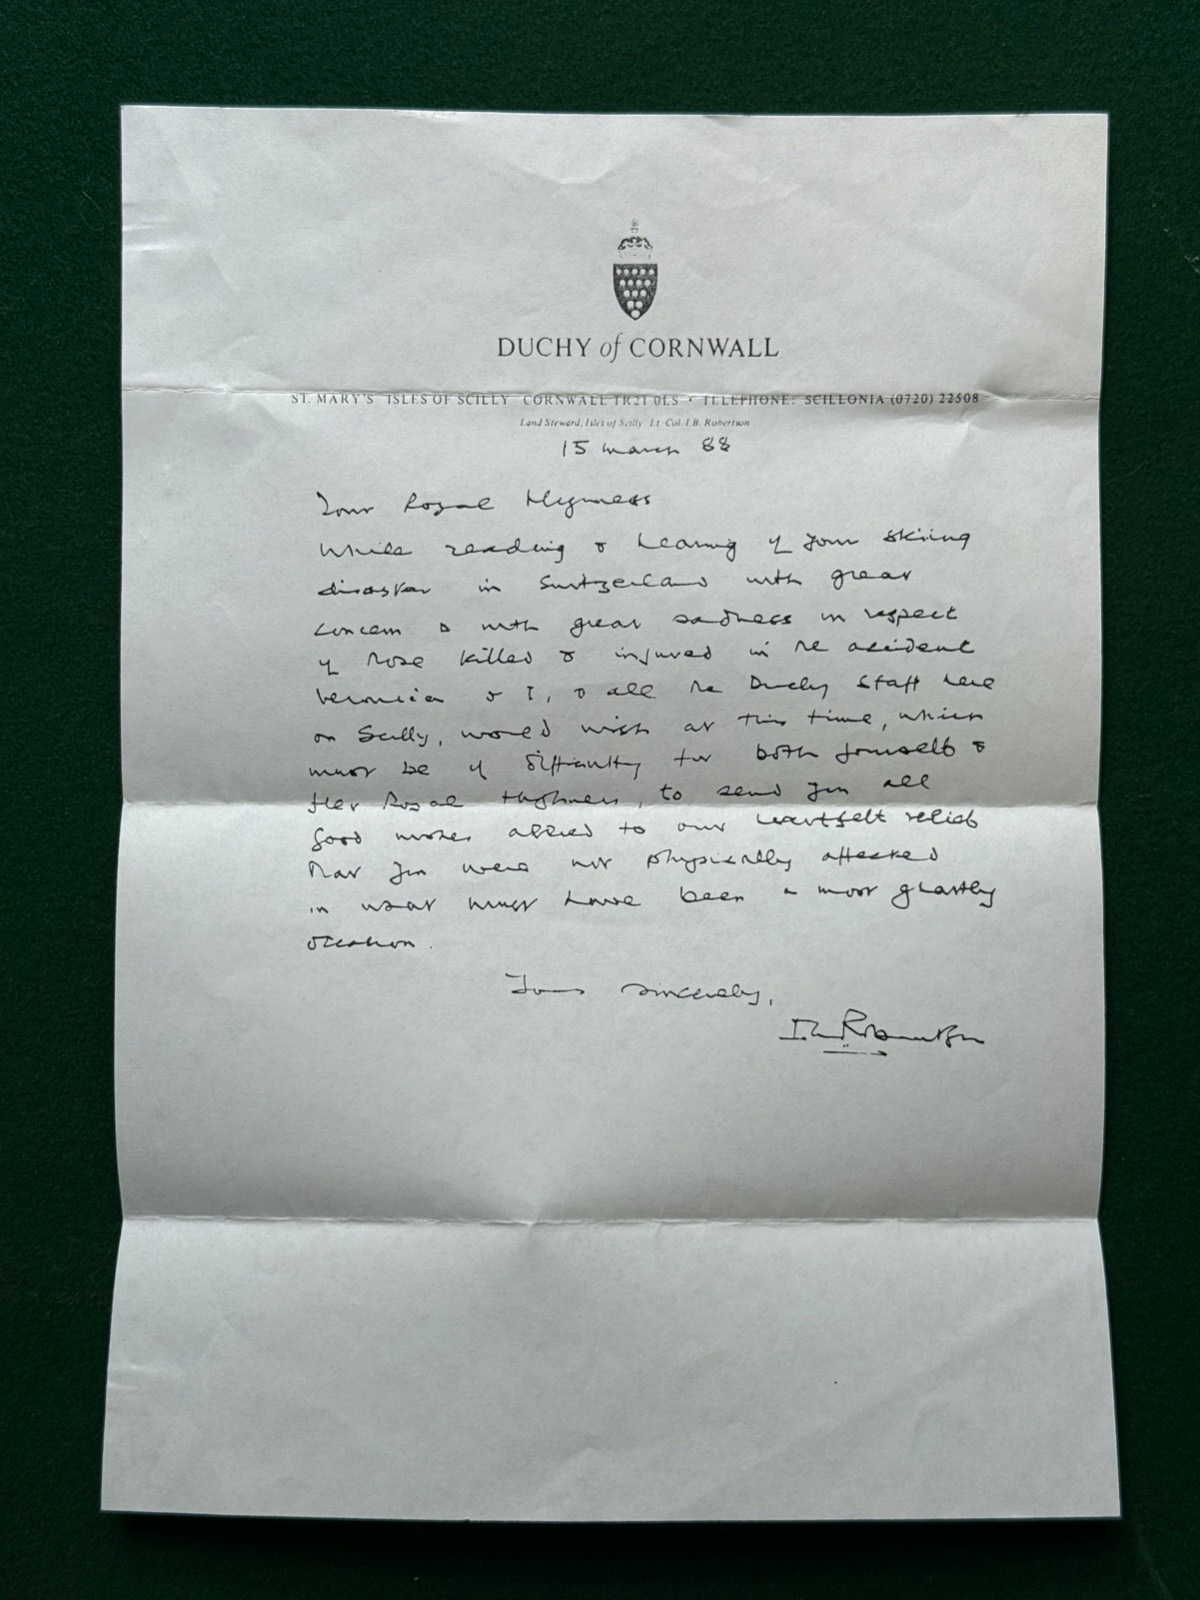 DUCHY of CORNWALL
ST. MARY'S ISLES OF SCILLY CORNWALL TR21 0LS • TELEPHONE: SCILLONIA (0720) 22508
Land Steward, Isles of Scilly: Lt. Col. I.B. Robertson
15 March 88
Your Royal Highness
While reading & hearing of your skiing
disaster in Switzerland with great
concern & with great sadness in respect
of those killed & injured in the accident
Veronica & I, & all the Duchy Staff here
on Scilly, would wish at this time, which
must be of difficulty for both yourself &
Her Royal Highness, to send you all
good wishes allied to our heartfelt relief
that you were not physically affected
in what must have been a most ghastly
occasion.
Yours sincerely,
Robertson